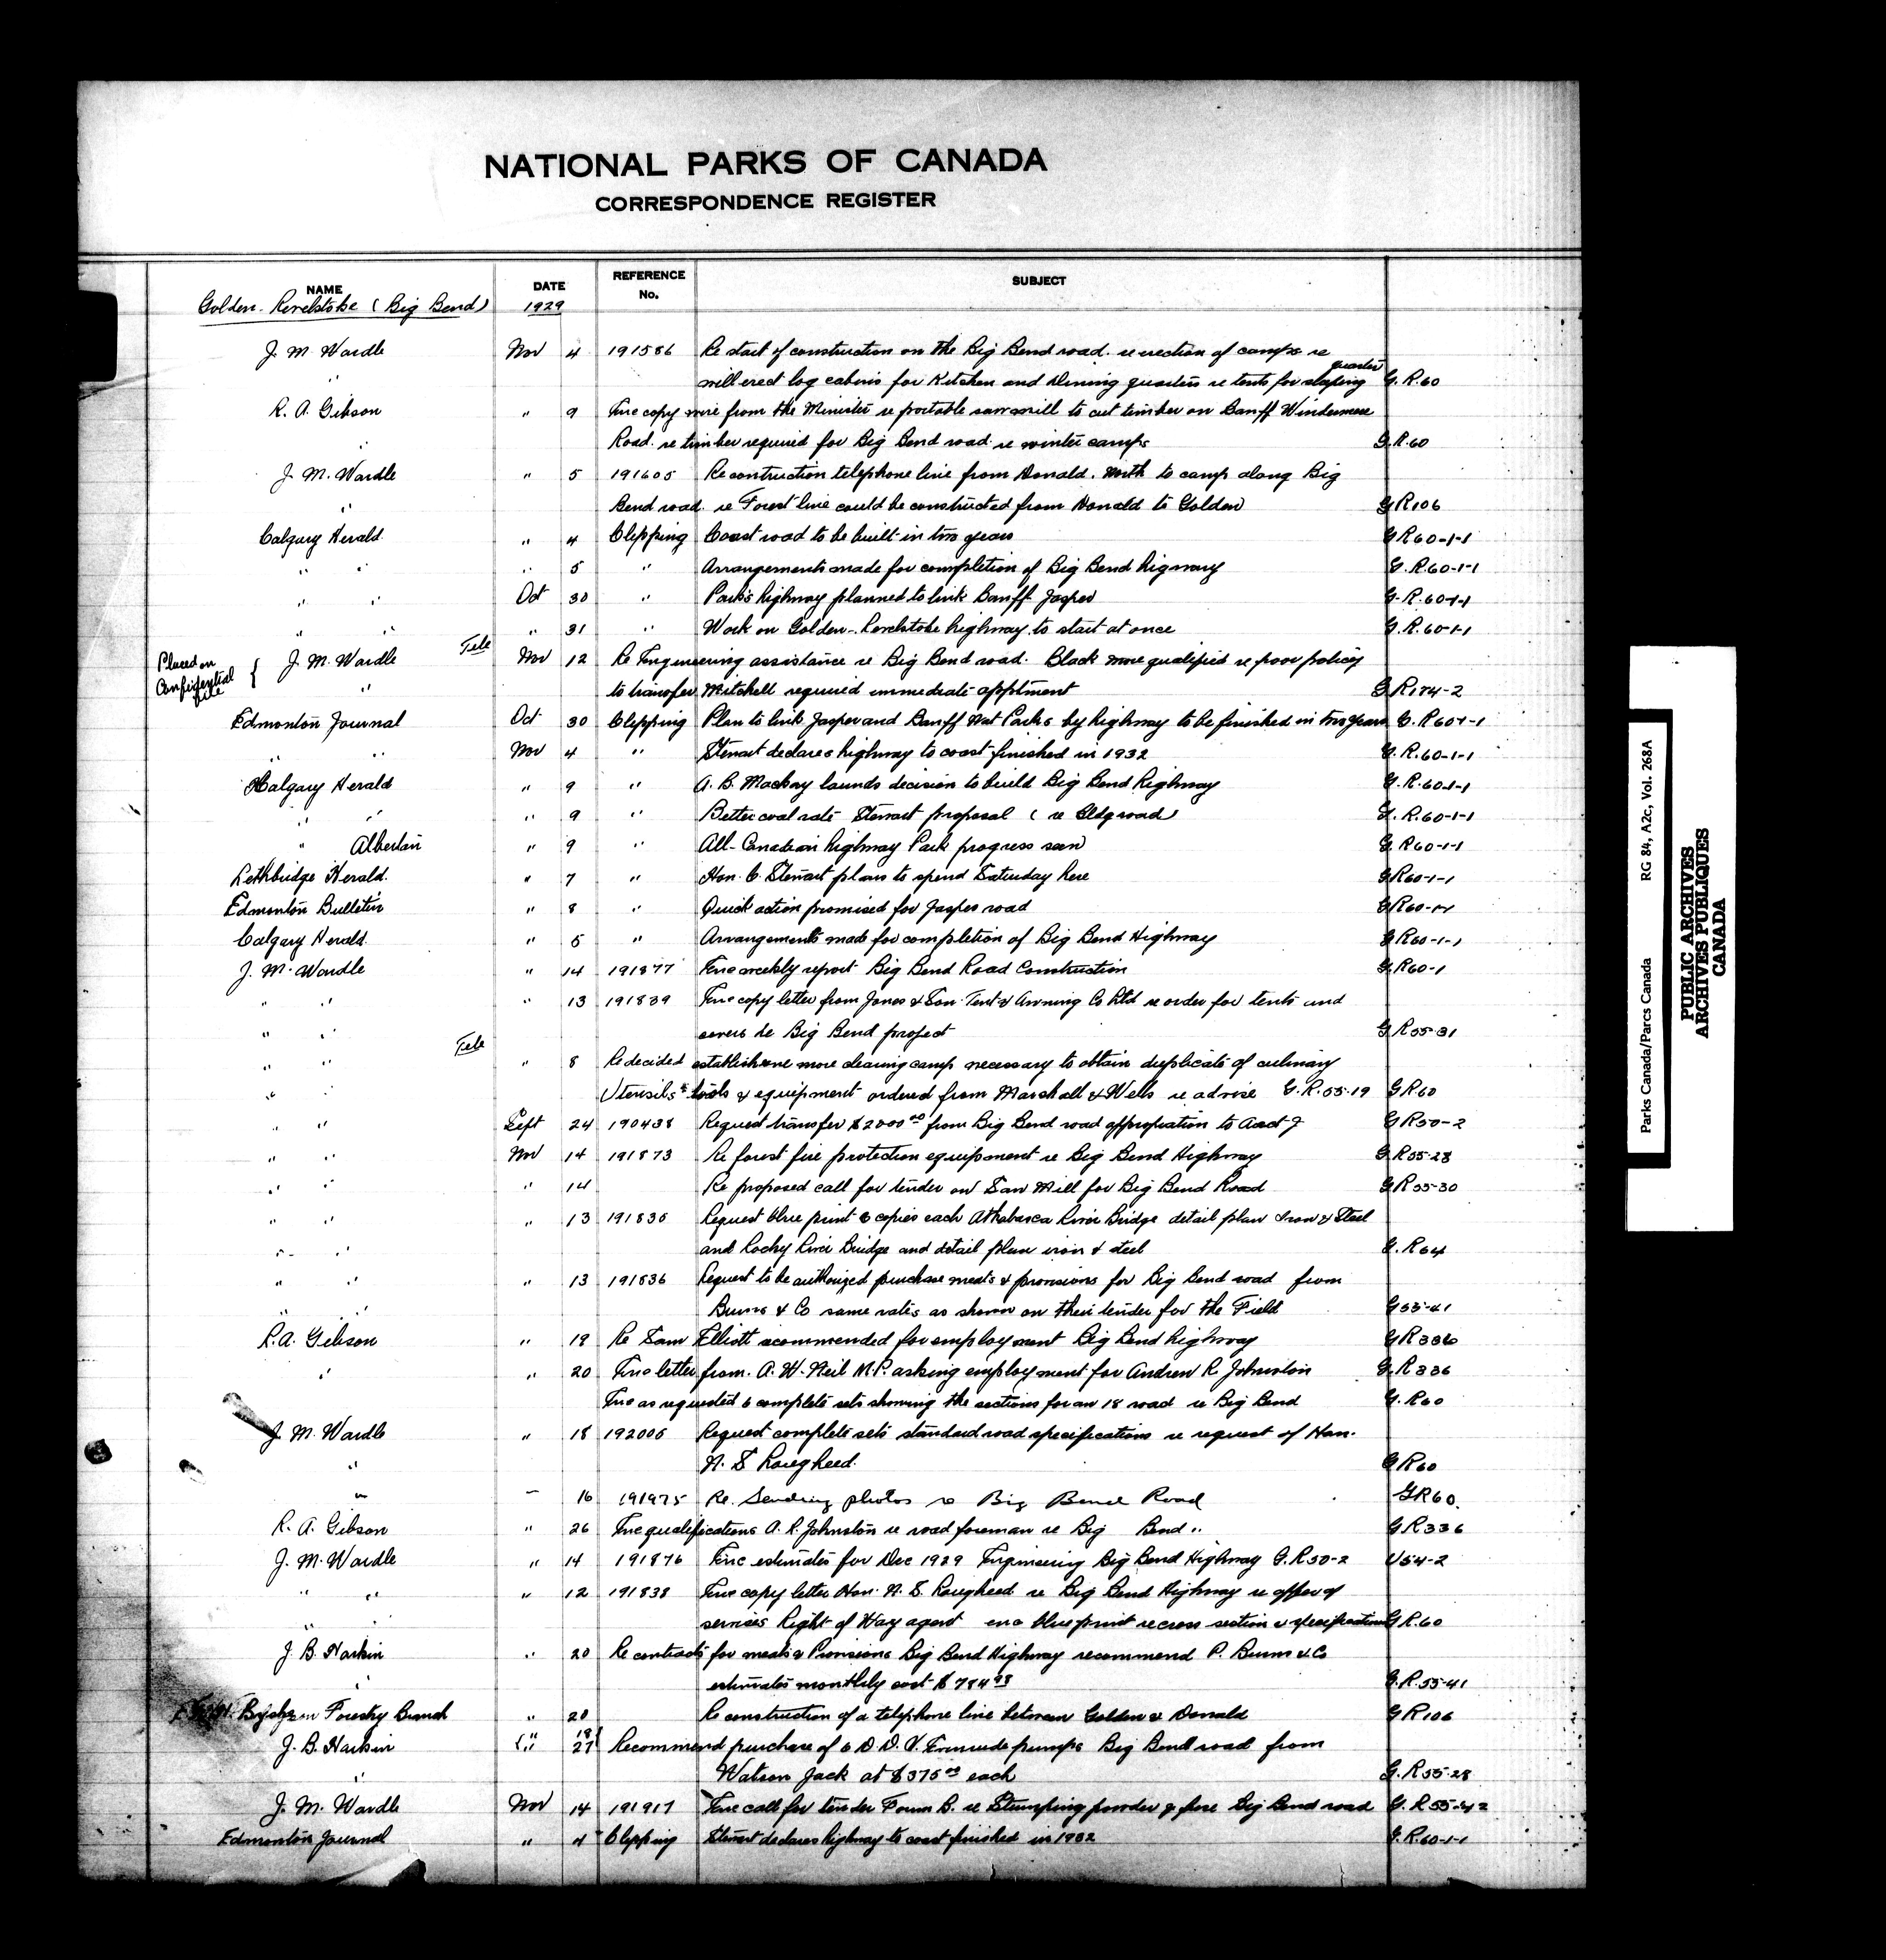 NATIONAL PARKS OF CANADA
CORRESPONDENCE REGISTER
NAME DATE REFERENCE No. SUBJECT
Golden-Revelstoke (Big Bend) 1929
J. M. Wardle Nov 4 191586 Re start of construction on the Big Bend road. re erection of camps re
" will erect log cabins for Kitchen and Dining quarters re tents for sleeping quarters G.R.60
R. A. Gibson " 9 Enc copy wire from the Minister re portable sawmill to cut timber on Banff Windermere
" Road. re timber required for Big Bend road re winter camps G.R.60
J. M. Wardle " 5 191605 Re construction telephone line from Donald. North to camp along Big
" Bend road. re Forest line could be constructed from Donald to Golden GR106
Calgary Herald " 4 Clipping Coast road to be built in two years GR60-1-1
" " " 5 " Arrangements made for completion of Big Bend highway G.R.60-1-1
" " Oct 30 " Parks highway planned to link Banff Jasper G.R.60-1-1
" " " 31 " Work on Golden-Revelstoke highway to start at once G.R.60-1-1
Placed on Confidential file { J. M. Wardle Tele Nov 12 Re Engineering assistance re Big Bend road. Black more qualified re poor policy
" to transfer Mitchell required immediate apptment G.R174-2
Edmonton Journal Oct 30 Clipping Plan to link Jasper and Banff Nat Parks by highway to be finished in two years G.R60-1-1
" " Nov 4 " Stewart declares highway to coast finished in 1932 G.R.60-1-1
Calgary Herald " 9 " A. B. Mackay launds decision to build Big Bend Highway G.R.60-1-1
" " " 9 " Better coal rate Stewart proposal (re Bldg road) G.R.60-1-1
" Albertan " 9 " All-Canadian highway Park progress seen G.R60-1-1
Lethbridge Herald. " 7 " Hon. C. Stewart plans to spend Saturday here GR60-1-1
Edmonton Bulletin " 8 " Quick action promised for Jasper road GR60-1-1
Calgary Herald. " 5 " Arrangements made for completion of Big Bend Highway GR60-1-1
J. M. Wardle " 14 191877 Enc weekly report Big Bend Road Construction G.R60-1
" " " 13 191839 Enc copy letter from Jones & Son Tent & Awning Co Ltd re order for tents and
" " covers re Big Bend project G.R55-31
" " Tele " 8 Re decided establish one more clearing camp necessary to obtain duplicate of culinary
" " Utensils & tools & equipment ordered from Marshall & Wells re advise G.R.55-19 GR60
" " Sept 24 190438 Request transfer $2000.00 from Big Bend road appropriation to Acct J GR50-2
" " Nov 14 191873 Re forest fire protection equipment re Big Bend Highway G.R55-28
" " " 14 Re proposed call for tender on Saw Mill for Big Bend Road GR55-30
" " " 13 191835 Request blue print 6 copies each Athabasca River Bridge detail plan Iron & Steel
" " and Rocky River Bridge and detail plan iron & steel G.R64
" " " 13 191836 Request to be authorized purchase meats & provisions for Big Bend road from
" " Burns & Co same rates as shown on their tender for the Field G55-41
R.A. Gibson " 19 Re Sam Elliott recommended for employment Big Bend highway GR336
" " 20 Enc letter from A. W. Neil M.P. asking employment for Andrew R Johnston G.R336
Enc as requested 6 complete sets showing the sections for an 18 road re Big Bend G.R60
J. M. Wardle " 18 192006 Request complete sets standard road specifications re request of Hon.
" N. S Lougheed. GR60
" " 16 191975 Re. Sending photos re Big Bend Road GR60.
R. A. Gibson " 26 Enc qualifications A. R. Johnston re road foreman re Big Bend " GR336
J. M. Wardle " 14 191876 Enc estimates for Dec 1929 Engineering Big Bend Highway G.R50-2 U54-2
" " " 12 191838 Enc copy letter Hon. N. S. Lougheed re Big Bend Highway re offer of
" " services Right of Way agent enc blue print re cross section & specifications GR.60
J. B. Harkin " 20 Re contracts for meats & Provisions Big Bend Highway recommend P. Burns & Co
" estimates monthly cost $784.98 G.R.55-41
Forestry Branch " 20 Re construction of a telephone line between Golden & Donald GR106
J. B. Harkin " 19 " 27 Recommend purchase of 6 D. D. V. Evinrude pumps Big Bend road from
" Watson Jack at $375.00 each G.R55-28
J. M. Wardle Nov 14 191917 Enc call for tender Form B. re Stumping powder & fuse Big Bend road G.R55-42
Edmonton Journal " 4 Clipping Stewart declares highway to coast finished in 1932 G.R.60-1-1
Parks Canada/Parcs Canada RG 84, A2c, Vol. 268A
PUBLIC ARCHIVES
ARCHIVES PUBLIQUES
CANADA